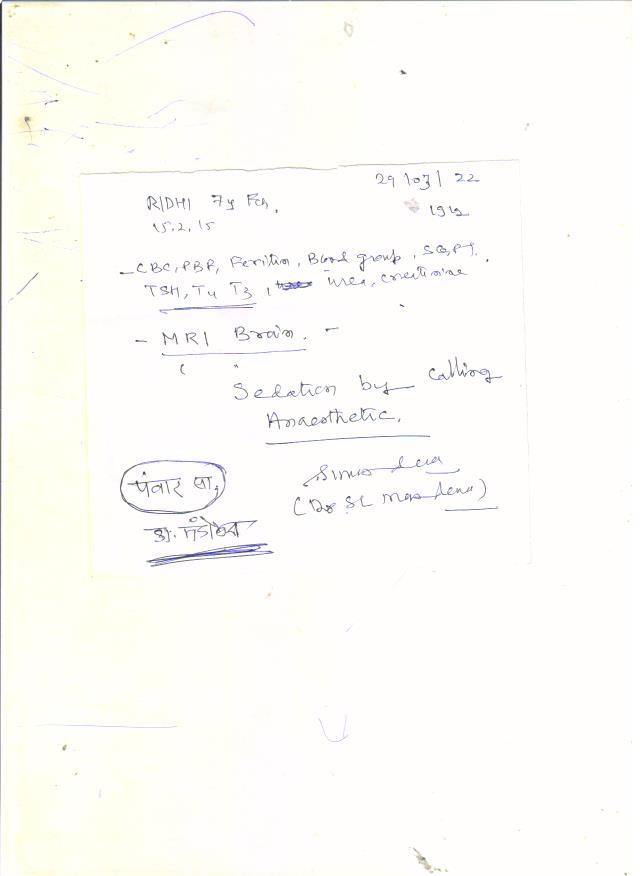 29/03/22
RIDHI 7y Fch.
1912
15.2.15
- CBC, PBF, Ferittin, Blood group, SGPT,
TSH, T4 T3, Urea, creatinine
- MRI Brain. -
Sedation by calling
Anaesthetic.
पंवार सा,
(Dr SL
डॉ. मंडोवरा